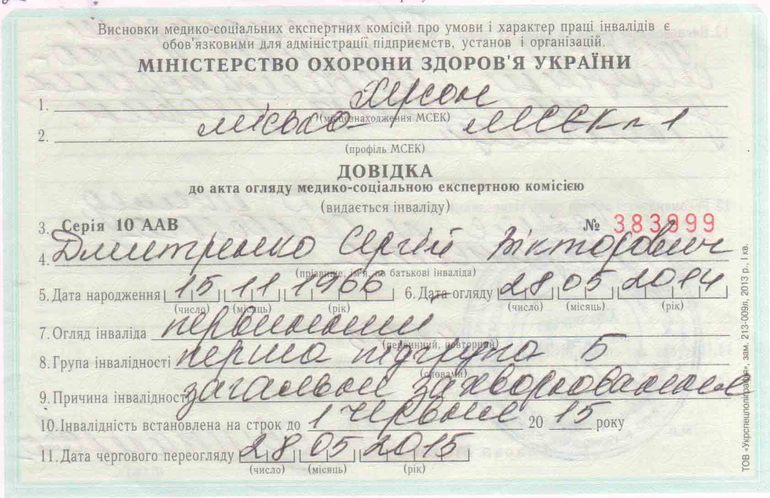 Висновки медико-соціальних експертних комісій про умови і характер праці інвалідів є
обов'язковими для адміністрації підприємств, установ і організацій.
МІНІСТЕРСТВО ОХОРОНИ ЗДОРОВ'Я УКРАЇНИ
1. Херсон
(місцезнаходження МСЕК)
2. місько- МСЕК n 1
(профіль МСЕК)
ДОВІДКА
до акта огляду медико-соціальною експертною комісією
(видається інваліду)
3. Серія 10 ААВ № 383999
4. Дмитренко Сергій Вікторович
(прізвище, ім'я, по батькові інваліда)
5. Дата народження 15 11 1966 6. Дата огляду 28 05 2014
(число) (місяць) (рік) (число) (місяць) (рік)
7. Огляд інваліда первинний
(первинний, повторний)
8. Група інвалідності перша підгрупа Б
(словами)
9. Причина інвалідності загальне захворювання
10. Інвалідність встановлена на строк до 1 червня 20 15 року
11. Дата чергового переогляду 28 05 2015
(число) (місяць) (рік)
ТОВ «Укрспецполіграфія», зам. 213-009л, 2013 р., I кв.